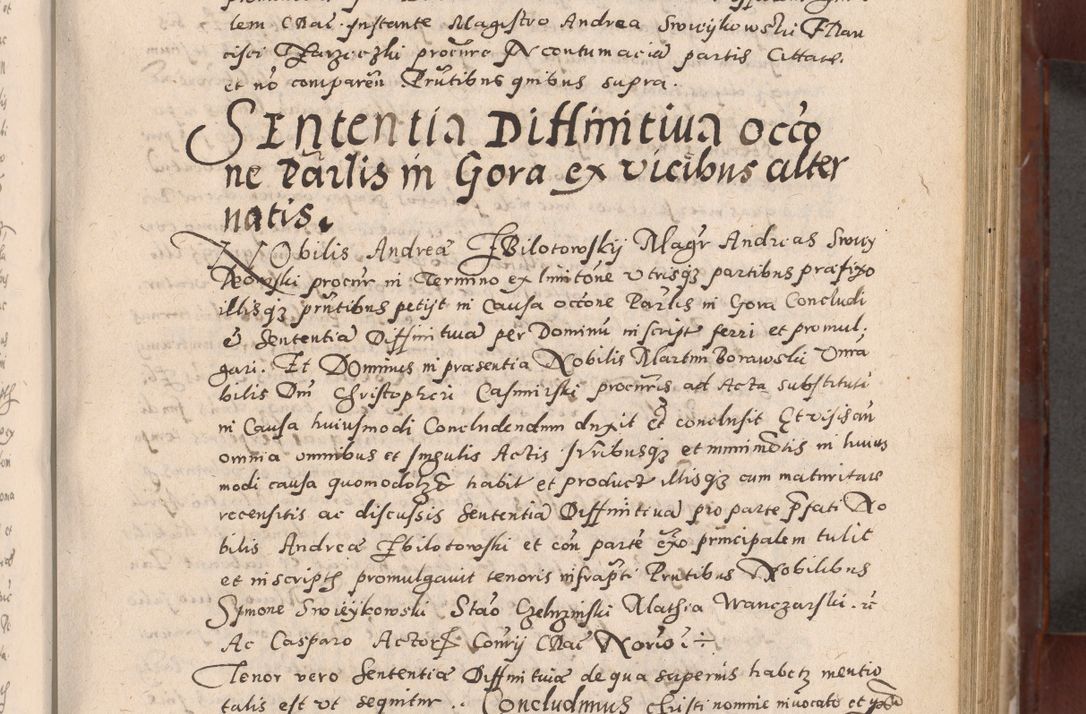 tem CRac. Instante Magistro Andrea Swieykowski Flau
cisci procure In contumacia partis Cittate.
et nō comparēn Prūtibus quibus supra.
Sententia Diffinitiua occo
ne Parlis in Gora ex vicibus alter
natis.
Nobilis Andreæ Zbilotowskij Magr Andreas Swiey
kowski procur in Termino ex limitōne vtrisq; partibus præfixo
illisq; prūtibus petijt in Causa occōne Parlis in Gora Concludi
et Sententiā Diffinitiuā per Dominū in script ferri et promul-
gari. Et Dominus in præsentia Nobilis Martini Borawski Venera
bilis Dni Christopheri Casimirski procuris ad Acta substituti
in Causa huiusmodi Concludendum duxit et conclusit Et visis
omnia omnibus et singulis Actis Iuribusq; et munimētis in huius
modi causa quomodolz habit et product illisq; cum maturitate
recensitis ac discussis Sententiā Diffinitiuā pro parte pfati No
bilis Andreæ Zbilotowski et con parte principalem tulit
et in scriptis promulgauit tenoris infrapti Prūtibus Nobilibus
Symone Swieykowski Mathia Wanczarski.
Ac Casparo Actor Conrij CRac Norio
Tenor vero Sententiæ Diffinitiuæ de qua superius habetz mentio
talis est vt sequitur .. Concludimus Christi nomine inuocato et